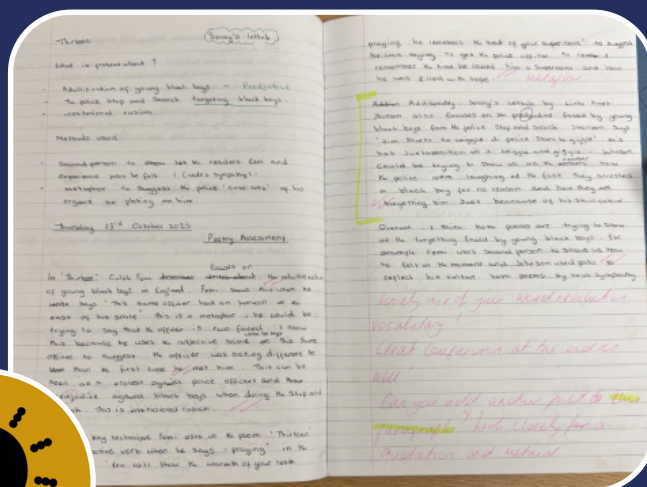 Thirteen
Sonny's lettah
What is poem about?
- Adultification of young black boys - Predjudice
- The police Stop and Search targeting black boys.
- institutional racism
Methods used
- Second person to let the readers feel and
experience pain he felt. (makes sympathy).
- metaphor to suggest the police
Thursday 23rd October 2025
Poetry Assessment
focuses on
In 'Thirteen' Caleb Femi the adultification
of young black boys in England. Femi shows this when he
This is a metaphor, he could be
trying to say that the officer is two faced. I know
this because he uses the adjective same in this same
officer to suggest the officer was acting different to
than the first time he met him. This can be
seen as a against police officers and
predjudice against black boys when doing the Stop and
This is institutional racism.
key technique Femi uses in the poem 'Thirteen'
verb when he says 'praying' in the
You will show the warmth of your teeth
praying he remembers the heat of your supernova" to suggest
he was trying to get the police officer to
remember the time he called him a Supernova and how
he was filled with hope.
Metaphor
Additionally Sonny's Lettah by Linton Kwesi
Johnson also focuses on the predjudice faced by young
black boys from the police Stop and search. Johnson says
"Jim start to wriggle di police start to giggle" this
has Juxtaposition in it wriggle and giggle. Johnson
could be trying to show us as the readers how
the police were laughing at the fact they arrested
a black boy for no reason and how they are
targetting him Just because of his skin colour.
Overall I think both poems are trying to show
us the targetting faced by young black boys. For
example Femi uses second person to show us how
he felt in the moment and Johnson used patois to
reflect his culture. Both poems
Lovely use of your word revolution
vocabulary!
Great comparison at the end as
well!
Can you add another point to
paragraph? Look closely for a
quotation and method